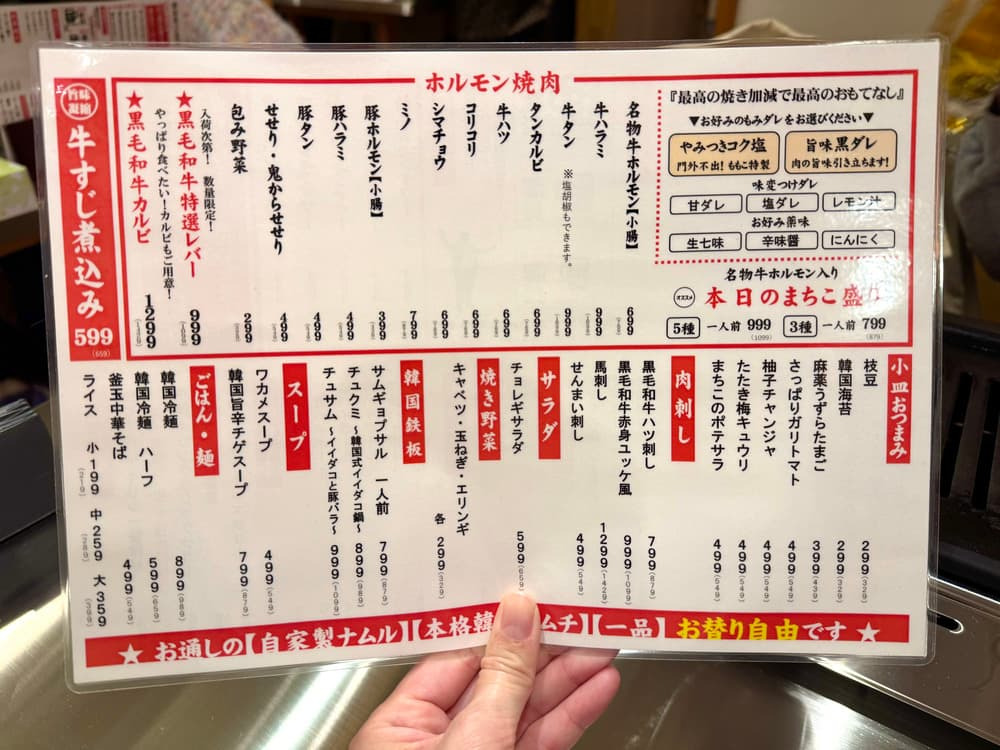 ホルモン焼肉
『最高の焼き加減で最高のおもてなし』
▼お好みのもみダレをお選びください▼
旨味黒ダレ
肉の旨味引き立ちます!
やみつきコク塩
門外不出! ももこ特製
味変つけダレ
甘ダレ
塩ダレ
レモン汁
お好み薬味
生七味
辛味醤
にんにく
名物牛ホルモン入り
オススメ
本日のまちこ盛り
5種 一人前 999
(1099)
3種 一人前 799
(879)
名物牛ホルモン【小腸】 699
牛ハラミ 999
牛タン 899
※塩胡椒もできます。
タンカルビ 699
牛ハツ 699
コリコリ 699
シマチョウ 699
ミノ 799
豚ホルモン【小腸】 399
豚ハラミ 499
豚タン 499
せせり・鬼からせせり 499
包み野菜 299
入荷次第! 数量限定!
★黒毛和牛特選レバー 999
やっぱり食べたい!カルビもご用意!
★黒毛和牛カルビ 1299
旨味
凝縮
牛すじ煮込み
599
(659)
小皿おつまみ
枝豆 299(329)
韓国海苔 299(329)
麻薬うずらたまご 399(439)
さっぱりガリトマト 499(549)
柚子チャンジャ 499(549)
たたき梅キュウリ 499(549)
まちこのポテサラ 499(549)
肉刺し
黒毛和牛ハツ刺し 799(879)
黒毛和牛赤身ユッケ風 999(1099)
馬刺し 1299(1429)
せんまい刺し 499(549)
サラダ
チョレギサラダ 599(659)
焼き野菜
キャベツ・玉ねぎ・エリンギ 各 299(329)
韓国鉄板
サムギョプサル 一人前 799(879)
チュクミ ~韓国式イイダコ鍋~ 899(989)
チュサム ~イイダコと豚バラ~ 999(1099)
スープ
ワカメスープ 499(549)
韓国旨辛チゲスープ 799(879)
ごはん・麺
韓国冷麺 899(989)
韓国冷麺 ハーフ 599(659)
釜玉中華そば 499(549)
ライス 小 199(219) 中 259(289) 大 359(399)
★ お通しの【自家製ナムル】【本格韓 ムチ】【一品】お替り自由です ★